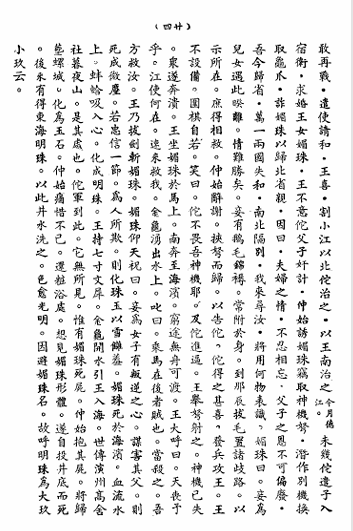 (四廿)
敢再戰。遣使請和。王喜。割小江以北佗治之。以王南治之今月德江。未幾佗遣子入
宿衛。求婚王女媚珠。王不意佗父子奸計。仲始誘媚珠竊取神機弩。潛作別機換
取龜爪。詐媚珠以歸北省親。因曰。夫婦之情。不忍相忘。父子之恩不可偏廢。
吾今歸省。萬一兩國失和。南北隔別。我來尋汝。將用何物表識。媚珠曰。妾為
兒女遇此暌離。情難勝矣。妾有鵝毛錦褥。常附於身。到那辰拔毛置諸岐路。以
示所在。庶得相救。仲始辭謝。挾弩而歸。以告佗。佗得之甚喜。發兵攻王。王
不設備。圍棋自若。笑曰。佗不畏吾神機耶。及佗進逼。王舉弩射之。神機已失
。衆遂奔潰。王坐媚珠於馬上。南奔至海濱。窮途無舟可渡。王大呼曰。天喪予
乎。江使何在。速來救我。金龜湧出水上。叱曰。乘馬在後者賊也。當殺之。吾
方救汝。王乃拔劍斬媚珠。媚珠仰天祝曰。妾為女子有叛逆之心。謀害其父。則
死成微塵。若忠信一節。為人所欺。則化珠玉以雪讎羞。媚珠死於海濱。血流水
上。蚌蛤吸入心。化成明珠。王持七寸文犀。金龜開水引王入海。世傳演州高舍
社暮夜山。是其處也。佗軍到此。它無所見。惟有媚珠死屍。仲始抱其屍。將歸
塟螺城。化為玉石。仲始痛惜不已。還粧浴處。想見媚珠形體。遂自投井底而死
。後來有得東海明珠。以此井水洗之。色愈光明。因避媚珠名。故呼明珠為大玖
小玖云。